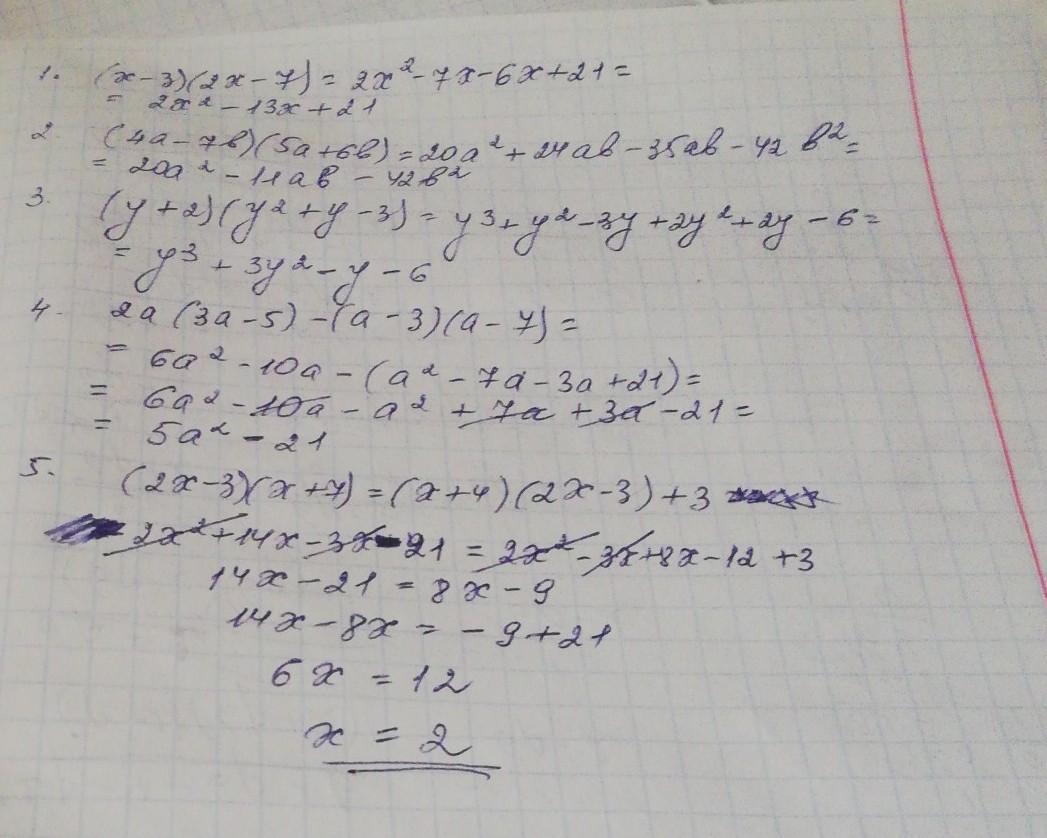 1. (x-3)(2x-7) = 2x²-7x-6x+21 =
= 2x²-13x+21
2. (4a-7b)(5a+6b)=20a²+24ab-35ab-42b²=
= 20a²-11ab-42b²
3. (y+2)(y²+y-3) = y³+y²-3y+2y²+2y-6=
= y³+3y²-y-6
4. 2a(3a-5)-(a-3)(a-7)=
= 6a²-10a-(a²-7a-3a+21)=
= 6a²-10a-a²+7a+3a-21=
= 5a²-21
5. (2x-3)(x+7)=(x+4)(2x-3)+3
2x²+14x-3x-21=2x²-3x+8x-12+3
14x-21=8x-9
14x-8x=-9+21
6x=12
x=2